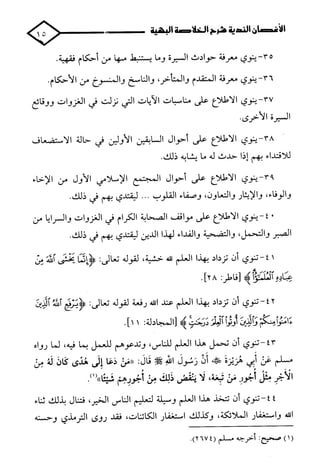 الأغصان الندية شرح الخلاصة البهية
١٥
٣٥-ينوي معرفة حوادث السيرة وما يستنبط منها من أحكام فقهية.
٣٦-ينوي معرفة المتقدم والمتأخر، والناسخ والمنسوخ من الأحكام.
٣٧-ينوي الاطلاع على مناسبات الآيات التي نزلت في الغزوات ووقائع
السيرة الأخرى.
٣٨-ينوي الاطلاع على أحوال السابقين الأولين في حالة الاستضعاف
للاقتداء بهم إذا حدث له ما يشابه ذلك.
٣٩-ينوي الاطلاع على أحوال المجتمع الإسلامي الأول من الإخاء
والوفاء، والإيثار والتعاون، وصفاء القلوب ... ليقتدي بهم في ذلك.
٤٠-ينوي الاطلاع على مواقف الصحابة الكرام في الغزوات والسرايا من
الصبر والتحمل، والتضحية والفداء لهذا الدين ليقتدي بهم في ذلك.
٤١-ينوي أن تزداد بهذا العلم لله خشية، لقوله تعالى: ﴿إِنَّمَا يَخْشَى اللَّهَ مِنْ
عِبَادِهِ الْعُلَمَاءُ﴾ [فاطر: ٢٨].
٤٢-ينوي أن تزداد بهذا العلم عند الله رفعة لقوله تعالى: ﴿يَرْفَعِ اللَّهُ الَّذِينَ
ءَامَنُوا مِنكُمْ وَالَّذِينَ أُوتُوا الْعِلْمَ دَرَجَاتٍ﴾ [المجادلة: ١١].
٤٣-تنوي أن تحمل هذا العلم للناس، وتدعوهم للعمل بما فيه، لما رواه
مسلم عَنْ أَبِي هُرَيْرَةَ ﷺ أَنَّ رَسُولَ اللهِ ﷺ قَالَ: «مَنْ دَعَا إِلَى هُدًى كَانَ لَهُ مِنَ
الأَجْرِ مِثْلُ أُجُورِ مَنْ تَبِعَهُ، لَا يَنْقُصُ ذَلِكَ مِنْ أُجُورِهِمْ شَيْئًا»(١).
٤٤-تنوي أن تتخذ هذا العلم وسيلة لتعليم الناس الخير، فتنال بذلك ثناء
الله واستغفار الملائكة، وكذلك استغفار الكائنات، فقد روى الترمذي وحسنه
(١) صحيح: أخرجه مسلم (٢٦٧٤).